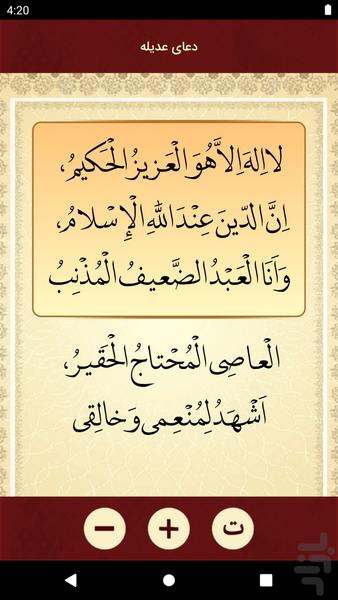 4:20
دعای عدیله
لا اِلهَ اِلاَّ هُوَ الْعَزیزُ الْحَکیمُ،
اِنَّ الدّینَ عِنْدَ اللّهِ الْإِسْلامُ،
وَ اَنَا الْعَبْدُ الضَّعیفُ الْمُذْنِبُ
الْعاصِی الْمُحْتاجُ الْحَقیرُ،
اَشْهَدُ لِمُنْعِمی وَ خالِقی
ت
بازار